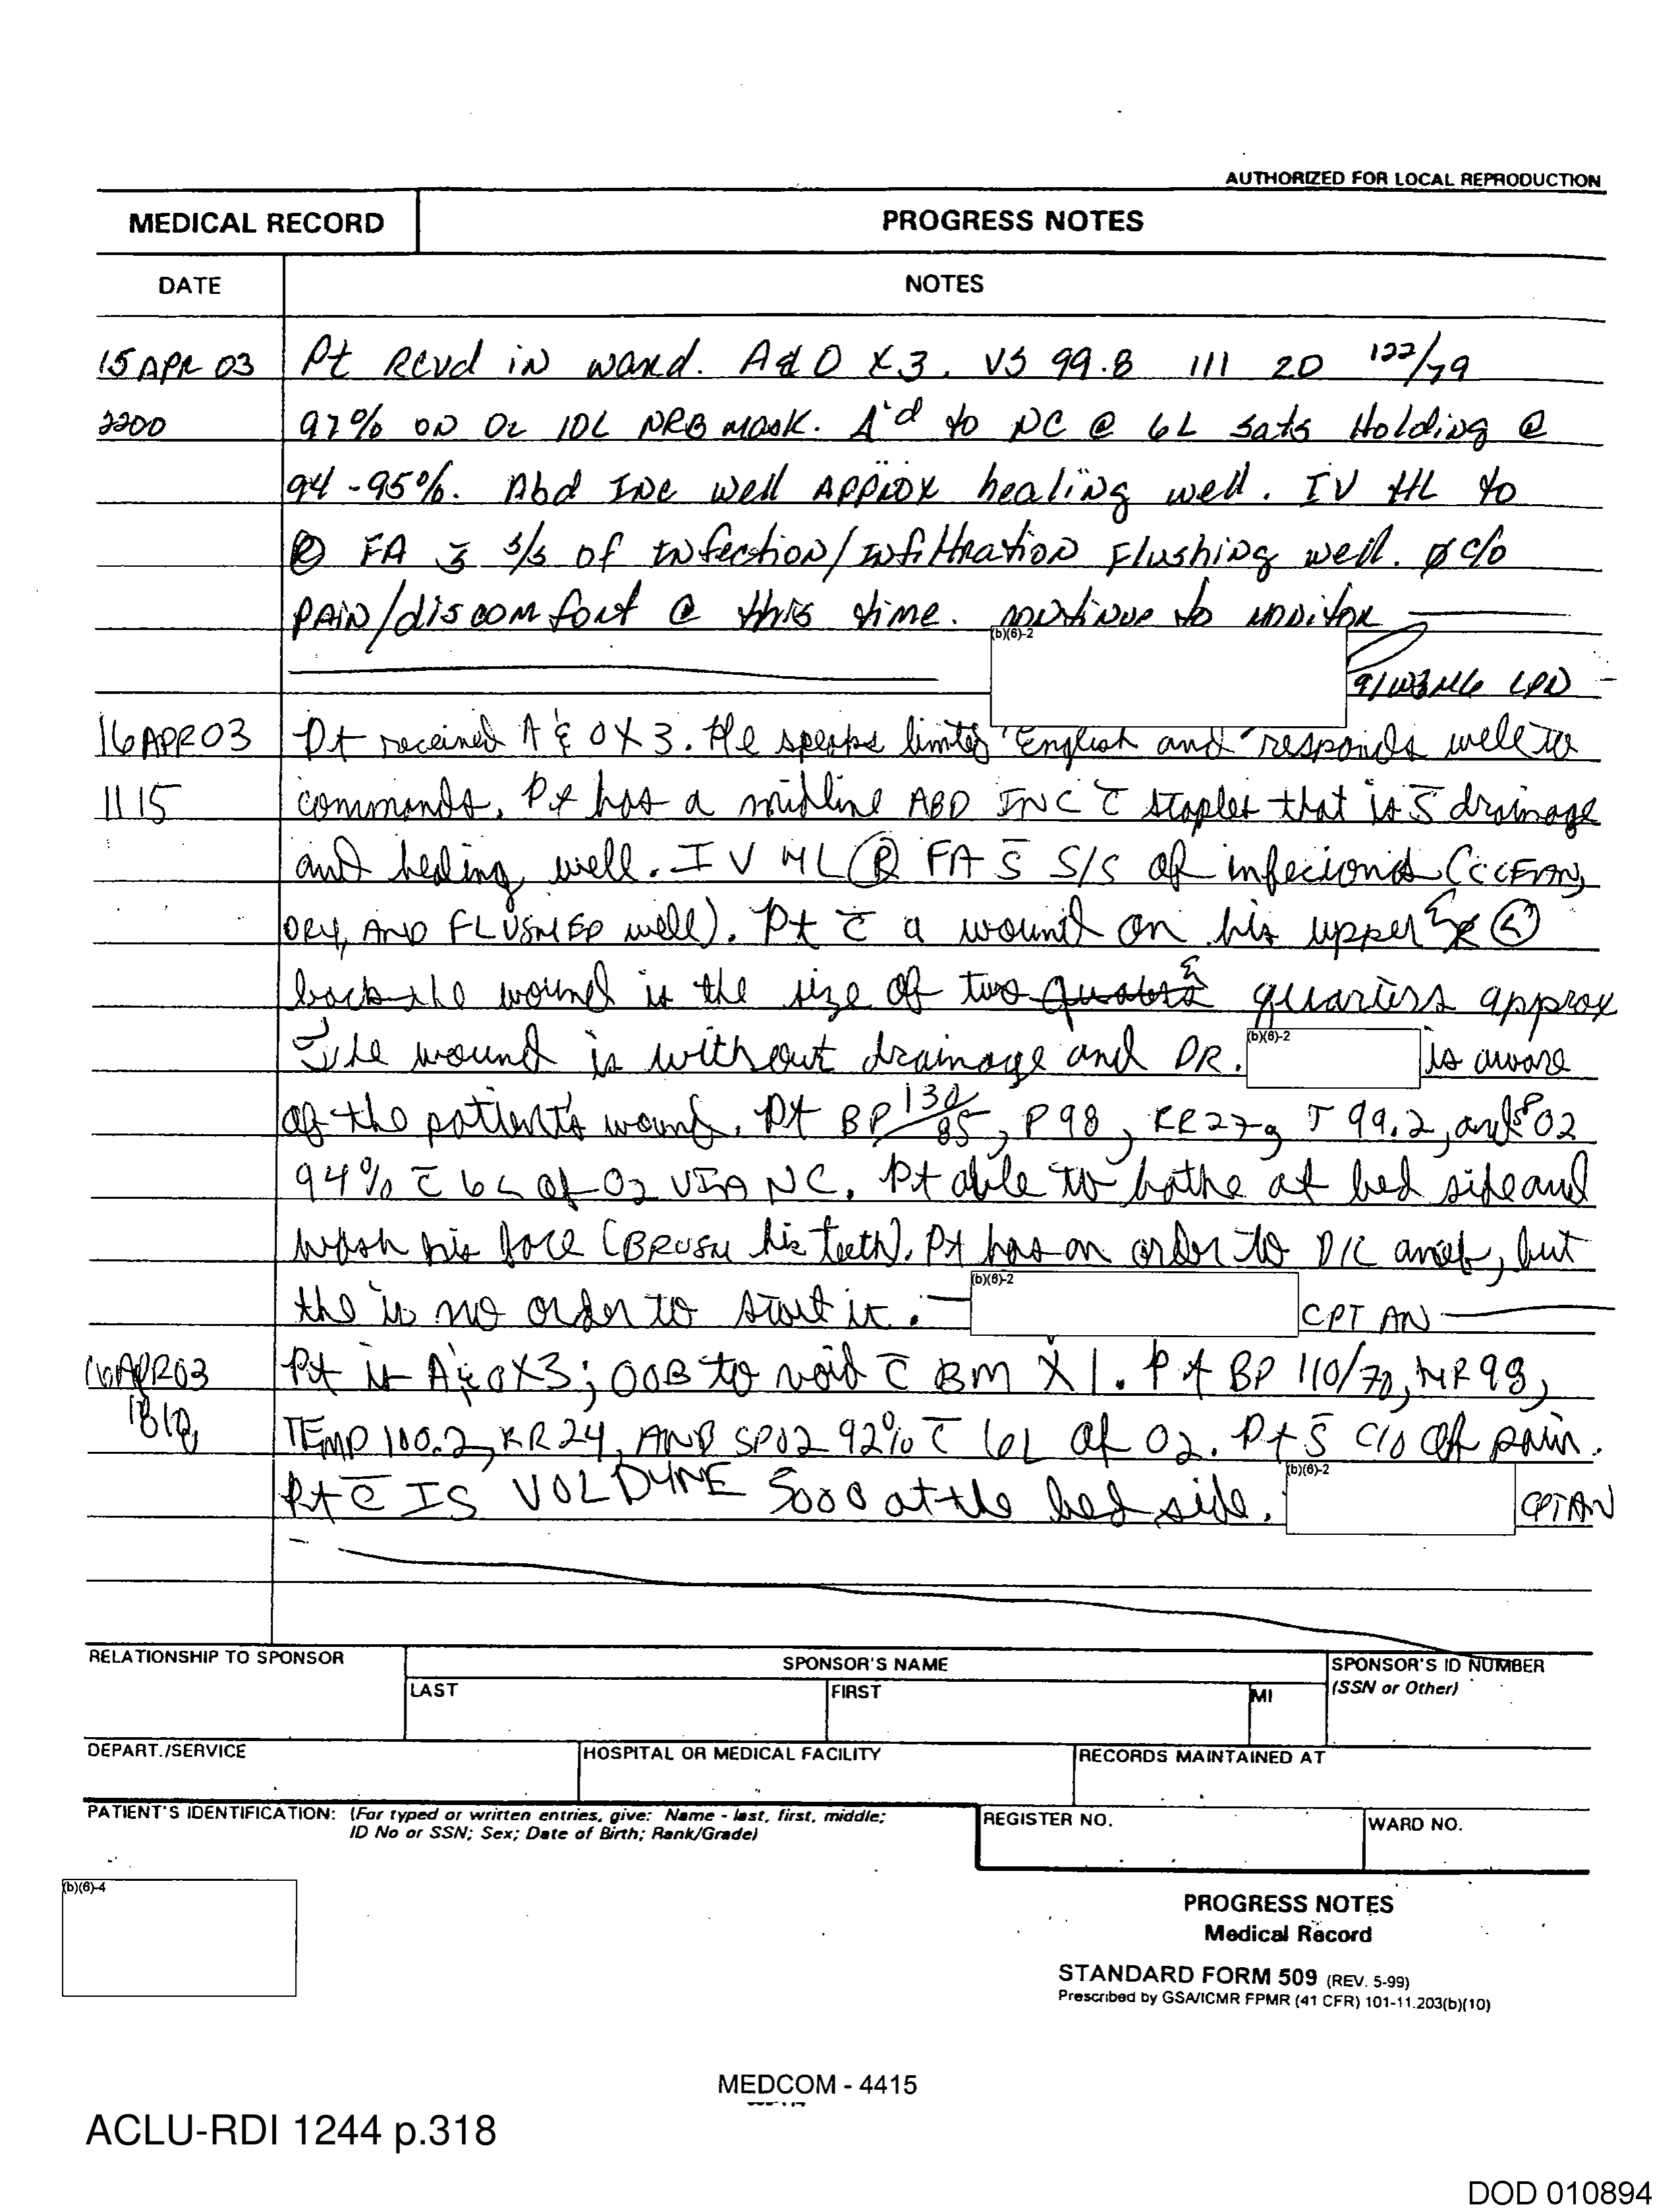 AUTHORIZED FOR LOCAL REPRODUCTION
MEDICAL RECORD PROGRESS NOTES
DATE NOTES
15 APR 03 Pt Rcvd in ward. A&O X3. VS 99.8 111 20 122/79
2200 97% on O2 10L NRB mask. Δ'd to NC @ 6L sats Holding @
94-95%. Abd Inc well Approx healing well. IV HL to
Ⓡ FA s̄ s/s of infection/infiltration Flushing well. ø c/o
PAIN/discomfort @ this time. continue to monitor
(b)(6)-2
LPN
16 APR 03 Pt received A & O X 3. He speaks limited English and responds well to
1115 commands. Pt has a midline ABD INC c̄ staples that is s̄ drainage
and healing well. IV HL Ⓡ FA s̄ S/S of infecions (CLEAN,
DRY, AND FLUSHED well). Pt c̄ a wound on his upper Ⓛ
back the wound is the size of two quarters approx
The wound is without drainage and DR. (b)(6)-2 is aware
of the patient's wound. Pt BP 130/85, P 98, RR 27, T 99.2, and SPO2
94% c̄ 6L of O2 VIA NC. Pt able to bathe at bed side and
wash his face (BRUSH his teeth). Pt has an order to D/C, but
the is no order to start it. (b)(6)-2 CPT AN
16 APR 03 Pt is A & O X3; OOB to void c̄ BM X 1. Pt BP 110/70, HR 98,
1810 TEMP 100.2, RR 24, AND SPO2 92% c̄ 6L of O2. Pt s̄ C/O of pain.
Pt c̄ IS VOLDYNE 5000 at the bed side. (b)(6)-2 CPT AN
RELATIONSHIP TO SPONSOR SPONSOR'S NAME SPONSOR'S ID NUMBER
LAST FIRST MI (SSN or Other)
DEPART./SERVICE HOSPITAL OR MEDICAL FACILITY RECORDS MAINTAINED AT
PATIENT'S IDENTIFICATION: (For typed or written entries, give: Name - last, first, middle; REGISTER NO. WARD NO.
ID No or SSN; Sex; Date of Birth; Rank/Grade)
(b)(6)-4
PROGRESS NOTES
Medical Record
STANDARD FORM 509 (REV. 5-99)
Prescribed by GSA/ICMR FPMR (41 CFR) 101-11.203(b)(10)
MEDCOM - 4415
ACLU-RDI 1244 p.318
DOD 010894